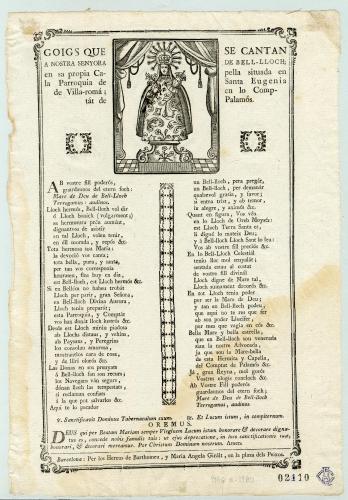 GOIGS QUE SE CANTAN
A NOSTRA SENYORA DE BELL-LLOCH;
en sa propia Capella situada en
la Parroquia de Santa Eugenia
de Villa-romá; en lo Comptát de
Palamós.
AB vostre fill poderós,
guardaunos del etern foch:
Mare de Deu de Bell-Lloch
Terregamus: audinos.
Lloch hermós, Bell-lloch vol dir
ó Lloch bonich (vulgarment)
sa hermosura préu aument,
dignantvos de assistir
en tal Lloch, volem tenir,
en ell morada, y repós &c.
Esta hermosa tant Maria:
la devoció vos canta;
tota bella, pura, y santa,
per tan vos corresponia
honraus, fins hoy en dia,
est Bell-lloch, est Lloch hermós &c.
Si en Betlém no haheu trobát
Lloch per parir, gran Señora,
en Bell-lloch Divina Aurora,
Lloch teniu preparát;
esta Parroquia, y Comptát
vos han dónat lloch hermós &c.
Desde est Lloch miráu piadosa
als Llochs distans, y vehins,
als Paysans, y Peregrins
los consolau amorosa,
mostrantlos cara de rosa,
y de lliri olorós &c.
Las Donas en sos prenyats
á Bell-lloch fan son recurs;
los Navegans ván segurs,
dónan lloch las tempestats;
si reclaman confiats
á la que pot salvarlos &c.
Aquí te lo pecador
un Bell-lloch, pera pregár,
un Bell-lloch, per demanár
qualsevol gracia, y favor;
si entra trist, y ab temor,
ix alegre, y animós &c.
Quant en figura, Vos véu
en lo Lloch de Oreb Moysés:
est Lloch Terra Santa es,
li digué lo mateix Deu;
y á Bell-lloch Lloch Sant lo feu
Vos ab vostre fill preciós &c.
En lo Bell-lloch Celestial
teniu lloc mol empinát;
sentada estau al costat
de vostre fill divinál
Lloch digne de Mare tal,
Lloch sumament decorós &c.
En tot Lloch teniu poder
per ser la Mare de Deu;
y tan en Bell-lloch podeu,
que aquí no te res que fer
ab son poder Llucifer,
per mes que vegia en cós &c.
Bella Mare y bella estrella,
que en Bell-lloch sou venerada
siau la nostra Advocada,
ja que sou la Mare-bella
de esta Hermita y Capella,
del Comptat de Palamós &c.
Já, gran Reyna, mól gosós
Vostres elogis concloch &c.
Ab Vostre Fill poderós
guardaunos del etern foch:
Mare de Deu de Bell-lloch
Terregamus, audinos.
℣. Sanctificavit Dominus Tabernaculum suum. ℟. Et Locum istum, in sempiternum.
OREMUS.
DEUS qui per Beatam Mariam semper Virginem Locum istum honorare & decorare dignatus
es, concede nobis famulis tuis: ut ejus deprecatione, in loco sanctificationis tuæ,
honorari, & decorari mereamur. Per Christum Dominum nostrum. Amen.
Barcelona: Per los Hereus de Barthomeu, y Maria Angela Giralt, en la plasa dels Peixos.
02110